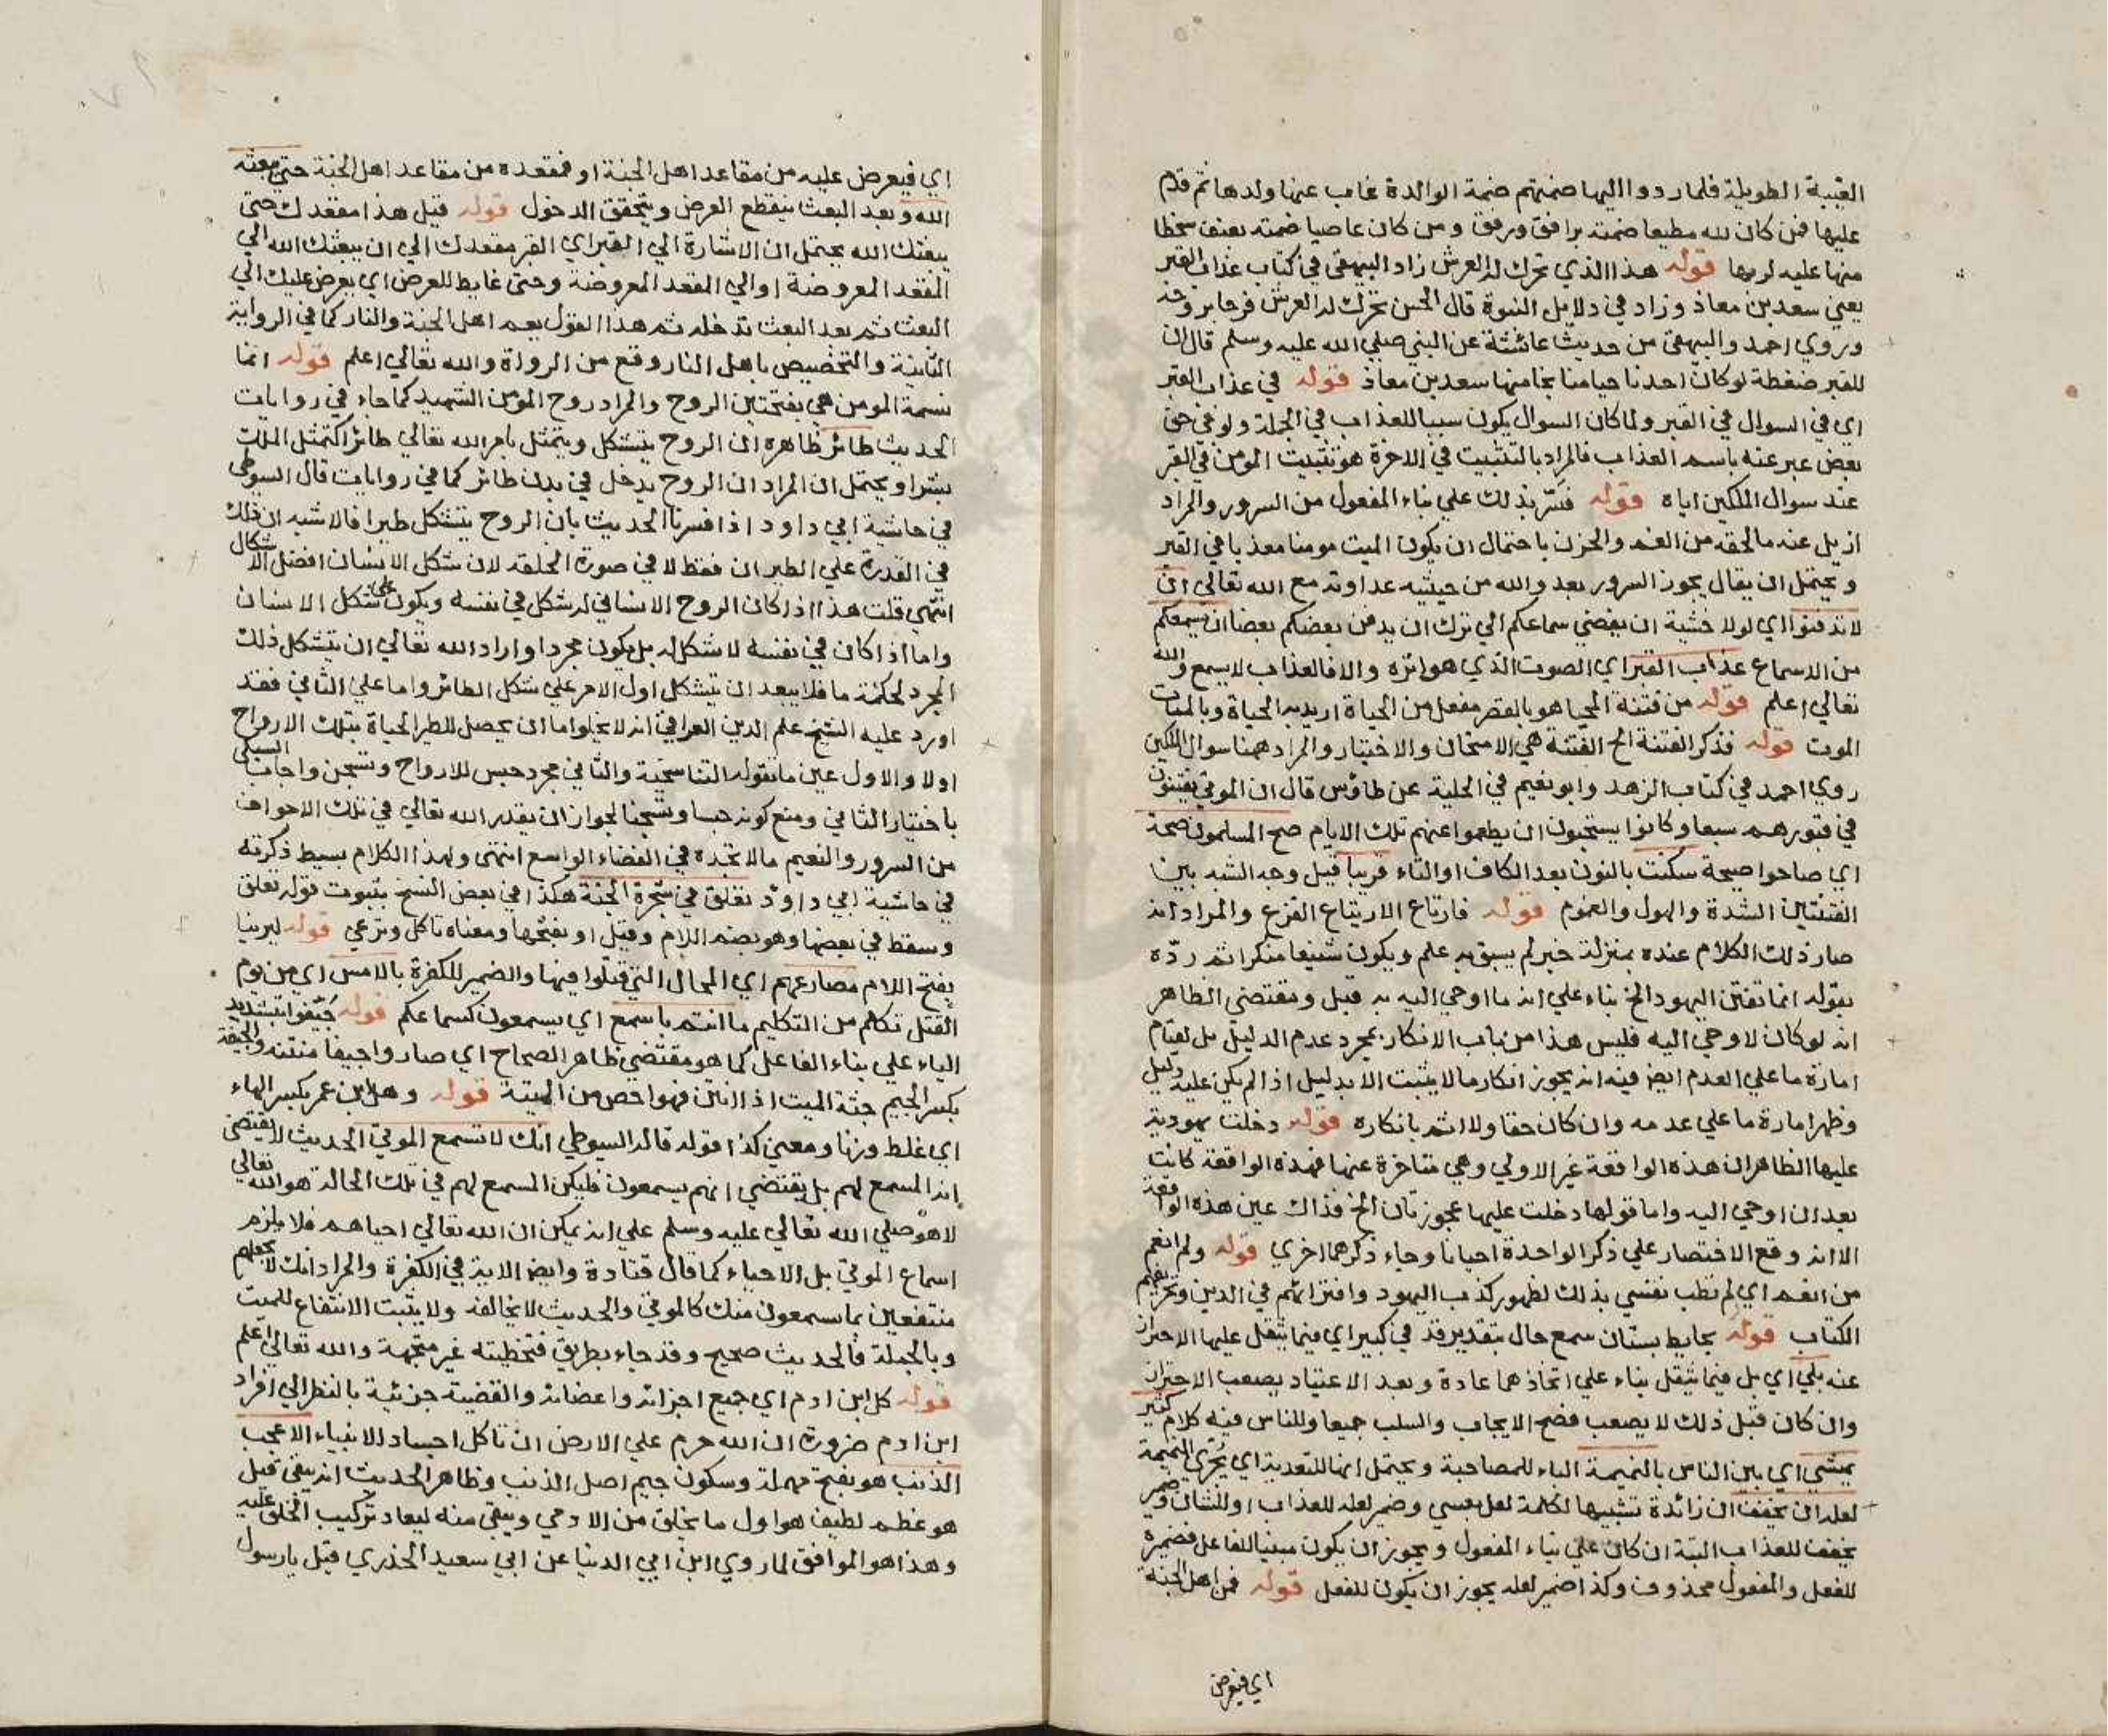 الغيبة الطويلة فلما ردوا اليها ضمتهم ضمة الوالدة غاب عنها ولدها ثم قدم
عليها فمن كان لله مطيعا ضمته برافق ورفق ومن كان عاصيا ضمته بعنف سخطا
منها عليه لربها قوله هذا الذي تحرك له العرش زاد البيهقي في كتاب عذاب القبر
يعني سعد بن معاذ وزاد في دلايل النبوة قال الحسن تحرك له العرش فرحا بروحه
وروي احمد والبيهقي من حديث عائشة عن النبي صلي الله عليه وسلم قال ان
للقبر ضغطة لو كان احدنا جيا منها نجا منها سعد بن معاذ قوله في عذاب القبر
اي في السوال في القبر ولما كان السوال يكون سببا للعذاب في الجملة ولو في حق
بعض عبر عنه باسم العذاب فالمراد بالتثبيت في الاخرة هو تثبيت المومن في القبر
عند سوال الملكين اياه قوله فسر بذلك علي بناء المفعول من السرور والمراد
ازيل عنه ما لحقه من الغم والحزن باحتمال ان يكون الميت مومنا معذبا في القبر
ويحتمل ان يقال يجوز السرور بعدو الله من حيثية عداوته مع الله تعالي ان
لا تدفنوا اي لولا خشية ان يفضي سماعكم الي ترك ان يدفن بعضكم بعضا ان يسمعكم
من الاسماع عذاب القبر اي الصوت الذي هو اثره والا فالعذاب لا يسمع والله
تعالي اعلم قوله من فتنة المحيا هو بالقصر مفعل من الحياة اريد به الحياة وبالممات
الموت قوله فذكر الفتنة الخ الفتنة هي الامتحان والاختيار والمراد ههنا سوال الملكين
روي احمد في كتاب الزهد وابو نعيم في الحلية عن طاؤس قال ان الموتي يفتنون
في قبورهم سبعا وكانوا يستحبون ان يطعموا عنهم تلك الايام صح المسلمون صحة
اي صاحوا صيحة سكنت بالنون بعد الكاف او التاء قريبا قيل وجه الشبه بين
الفتنتين الشدة والهول والعموم قوله فارتاع الارتياع الفزع والمراد انه
صار ذلك الكلام عنده بمنزلة خبر لم يسبق به علم ويكون شنيعا منكرا ثم ردّه
بقوله انما تفتن اليهود الخ بناء علي انه ما اوحي اليه به قبل ومقتضي الظاهر
انه لو كان لاوحي اليه فليس هذا من باب الانكار بمجرد عدم الدليل بل لقيام
امارة ما علي العدم ايضا فيه انه يجوز انكار ما لا يثبت الا بدليل اذا لم يكن عليه دليل
وظهر امارة ما علي عدمه وان كان حقا ولا اثم بانكاره قوله دخلت يهودية
عليها الظاهر ان هذه الواقعة غير الاولي وهي متاخرة عنها فهذه الواقعة كانت
بعد ان اوحي اليه واما قولها دخلت عليها عجوزتان الخ فذاك عين هذه الواقعة
الا انه وقع الاختصار علي ذكر الواحدة احيانا وجاء ذكرهما اخري قوله ولم انعم
من انعم اي لم تطب نفسي بذلك لظهور كذب اليهود وافترائهم في الدين وتحريفهم
الكتاب قوله بحايط بستان سمع حال بتقدير قد في كبير اي فيما يثقل عليها الاحتراز
عنه بلي اي بل فيما يثقل بناء علي اتخاذهما عادة وبعد الاعتياد يصعب الاحتراز
وان كان قبل ذلك لا يصعب فصح الايجاب والسلب جميعا وللناس فيه كلام كثير
يمشي اي بين الناس بالنميمة الباء للمصاحبة ويحتمل انها للتعدية اي يجري النميمة
لعله ان يخفف ان زائدة تشبيها لكلمة لعل بعسي وضمير لعله للعذاب او للشان وضمير
يخفف للعذاب البتة ان كان علي بناء المفعول ويجوز ان يكون مبنيا للفاعل فضميره
للفعل والمفعول محذوف وكذا ضمير لعله يجوز ان يكون للفعل قوله فمن اهل الجنة
اي فيعرض
اي فيعرض عليه من مقاعد اهل الجنة او فمقعده من مقاعد اهل الجنة حتي يبعثه
الله وبعد البعث ينقطع العرض ويتحقق الدخول قوله قيل هذا مقعدك حتي
يبعثك الله يحتمل ان الاشارة الي القبر اي القبر مقعدك الي ان يبعثك الله الي
المقعد المعروضة او الي المقعد المعروضة وحتي غاية للعرض اي يعرض عليك الي
البعث ثم بعد البعث تدخله ثم هذا القول يعم اهل الجنة والنار كما في الرواية
الثانية والتخصيص باهل النار وقع من الرواة والله تعالي اعلم قوله انما
نسمة المومن هي بفتحتين الروح والمراد روح المومن الشهيد كما جاء في روايات
الحديث طائر ظاهره ان الروح يتشكل ويتمثل بامر الله تعالي طائرا كتمثل الملك
بشرا ويحتمل ان المراد ان الروح يدخل في بدن طائر كما في روايات قال السيوطي
في حاشية ابي داود اذا فسرنا الحديث بان الروح يتشكل طيرا فالاشبه ان ذلك
في القدرة علي الطيران فقط لا في صورة الخلقة لان شكل الانسان افضل الاشكال
انتهي قلت هذا اذا كان الروح الانساني له شكل في نفسه ويكون علي شكل الانسان
واما اذا كان في نفسه لا شكل له بل يكون مجردا واراد الله تعالي ان يتشكل ذلك
المجرد لحكمة ما فلا يبعد ان يتشكل اول الامر علي شكل الطائر واما علي الثاني فقد
اورد عليه الشيخ علم الدين العراقي انه لا يخلوا اما ان يحصل للطير الحياة بتلك الارواح
اولا والاول عين ما تقوله التناسخية والثاني مجرد حبس للارواح وتسجن واجاب السبكي
باختيار الثاني ومنع كونه حبسا وتسجنا لجواز ان يقدر الله تعالي في تلك الاجواف
من السرور والنعيم ما لا تجده في الفضاء الواسع انتهي ولهذا الكلام بسيط ذكرته
في حاشية ابي داؤد تعلق في شجرة الجنة هكذا في بعض النسخ بثبوت قوله تعلق
وسقط في بعضها وهو بضم اللام وقيل او بفتحها ومعناه تاكل وترعي قوله ليرينا
بفتح اللام مصارعهم اي المحال التي قتلوا فيها والضمير للكفرة بالامس اي من يوم
القتل تكلم من التكليم ما انتم باسمع اي يسمعون كسماعكم قوله جيّفوا بتشديد
الياء علي بناء الفاعل كما هو مقتضي ظاهر الصحاح اي صاروا جيفا منتنة والجيفة
بكسر الجيم جثة الميت اذا انتن فهو اخص من الميتة قوله وهل ابن عمر بكسر الهاء
اي غلط وزنا ومعني كذا قوله قاله السيوطي انك لا تسمع الموتي الحديث لا يقتضي
انه المسمع لهم بل يقتضي انهم يسمعون فليكن المسمع لهم في تلك الحالة هو الله تعالي
لا هو صلي الله تعالي عليه وسلم علي انه يمكن ان الله تعالي احياهم فلا يلزم
اسماع الموتي بل الاحياء كما قال قتادة وايضا الاية في الكفرة والمراد انك لا تجعلهم
منتفعين بما يسمعون منك كالموتي والحديث لا يخالفه ولا يثبت الانتفاع للميت
وبالجملة فالحديث صحيح وقد جاء بطريق فتخطئته غير متجهة والله تعالي اعلم
قوله كل ابن ادم اي جميع اجزائه واعضائه والقضية جزئية بالنظر الي افراد
ابن ادم ضرورة ان الله حرم علي الارض ان تاكل اجساد الانبياء الا عجب
الذنب هو بفتح مهملة وسكون جيم اصل الذنب وظاهر الحديث انه يبقي قيل
هو عظم لطيف هو اول ما يخلق من الادمي ويبقي منه ليعاد تركيب الخلق عليه
وهذا هو الموافق لما روي ابن ابي الدنيا عن ابي سعيد الخدري قيل يا رسول